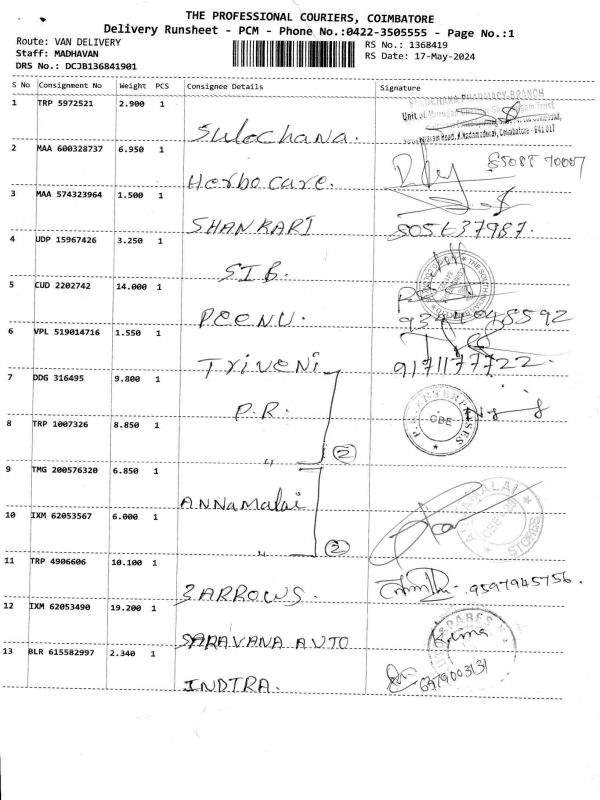 THE PROFESSIONAL COURIERS, COIMBATORE
Delivery Runsheet - PCM - Phone No.:0422-3505555 - Page No.:1
Route: VAN DELIVERY
RS No.: 1368419
Staff: MADHAVAN
RS Date: 17-May-2024
DRS No.: DCJB136841901
S No Consignment No Weight PCS Consignee Details Signature
1 TRP 5972521 2.900 1
Sulochana.
2 MAA 600328737 6.950 1
Herbo care.
3 MAA 574323964 1.500 1
SHANKARI
4 UDP 15967426 3.250 1
S I B.
5 CUD 2202742 14.000 1
PEENU. 9394048592
6 VPL 519014716 1.550 1
Triveni 9171177722.
7 DDG 316495 9.800 1
P.R. CBE
8 TRP 1007326 8.850 1
〃 2
9 TMG 200576320 6.850 1
ANNamalai
10 IXM 62053567 6.000 1
〃 2
11 TRP 4906606 10.100 1
3ARROWS. 9597945756.
12 IXM 62053490 19.200 1
SARAVANA AUTO
13 BLR 615582997 2.340 1
INDTRA. 6379003131